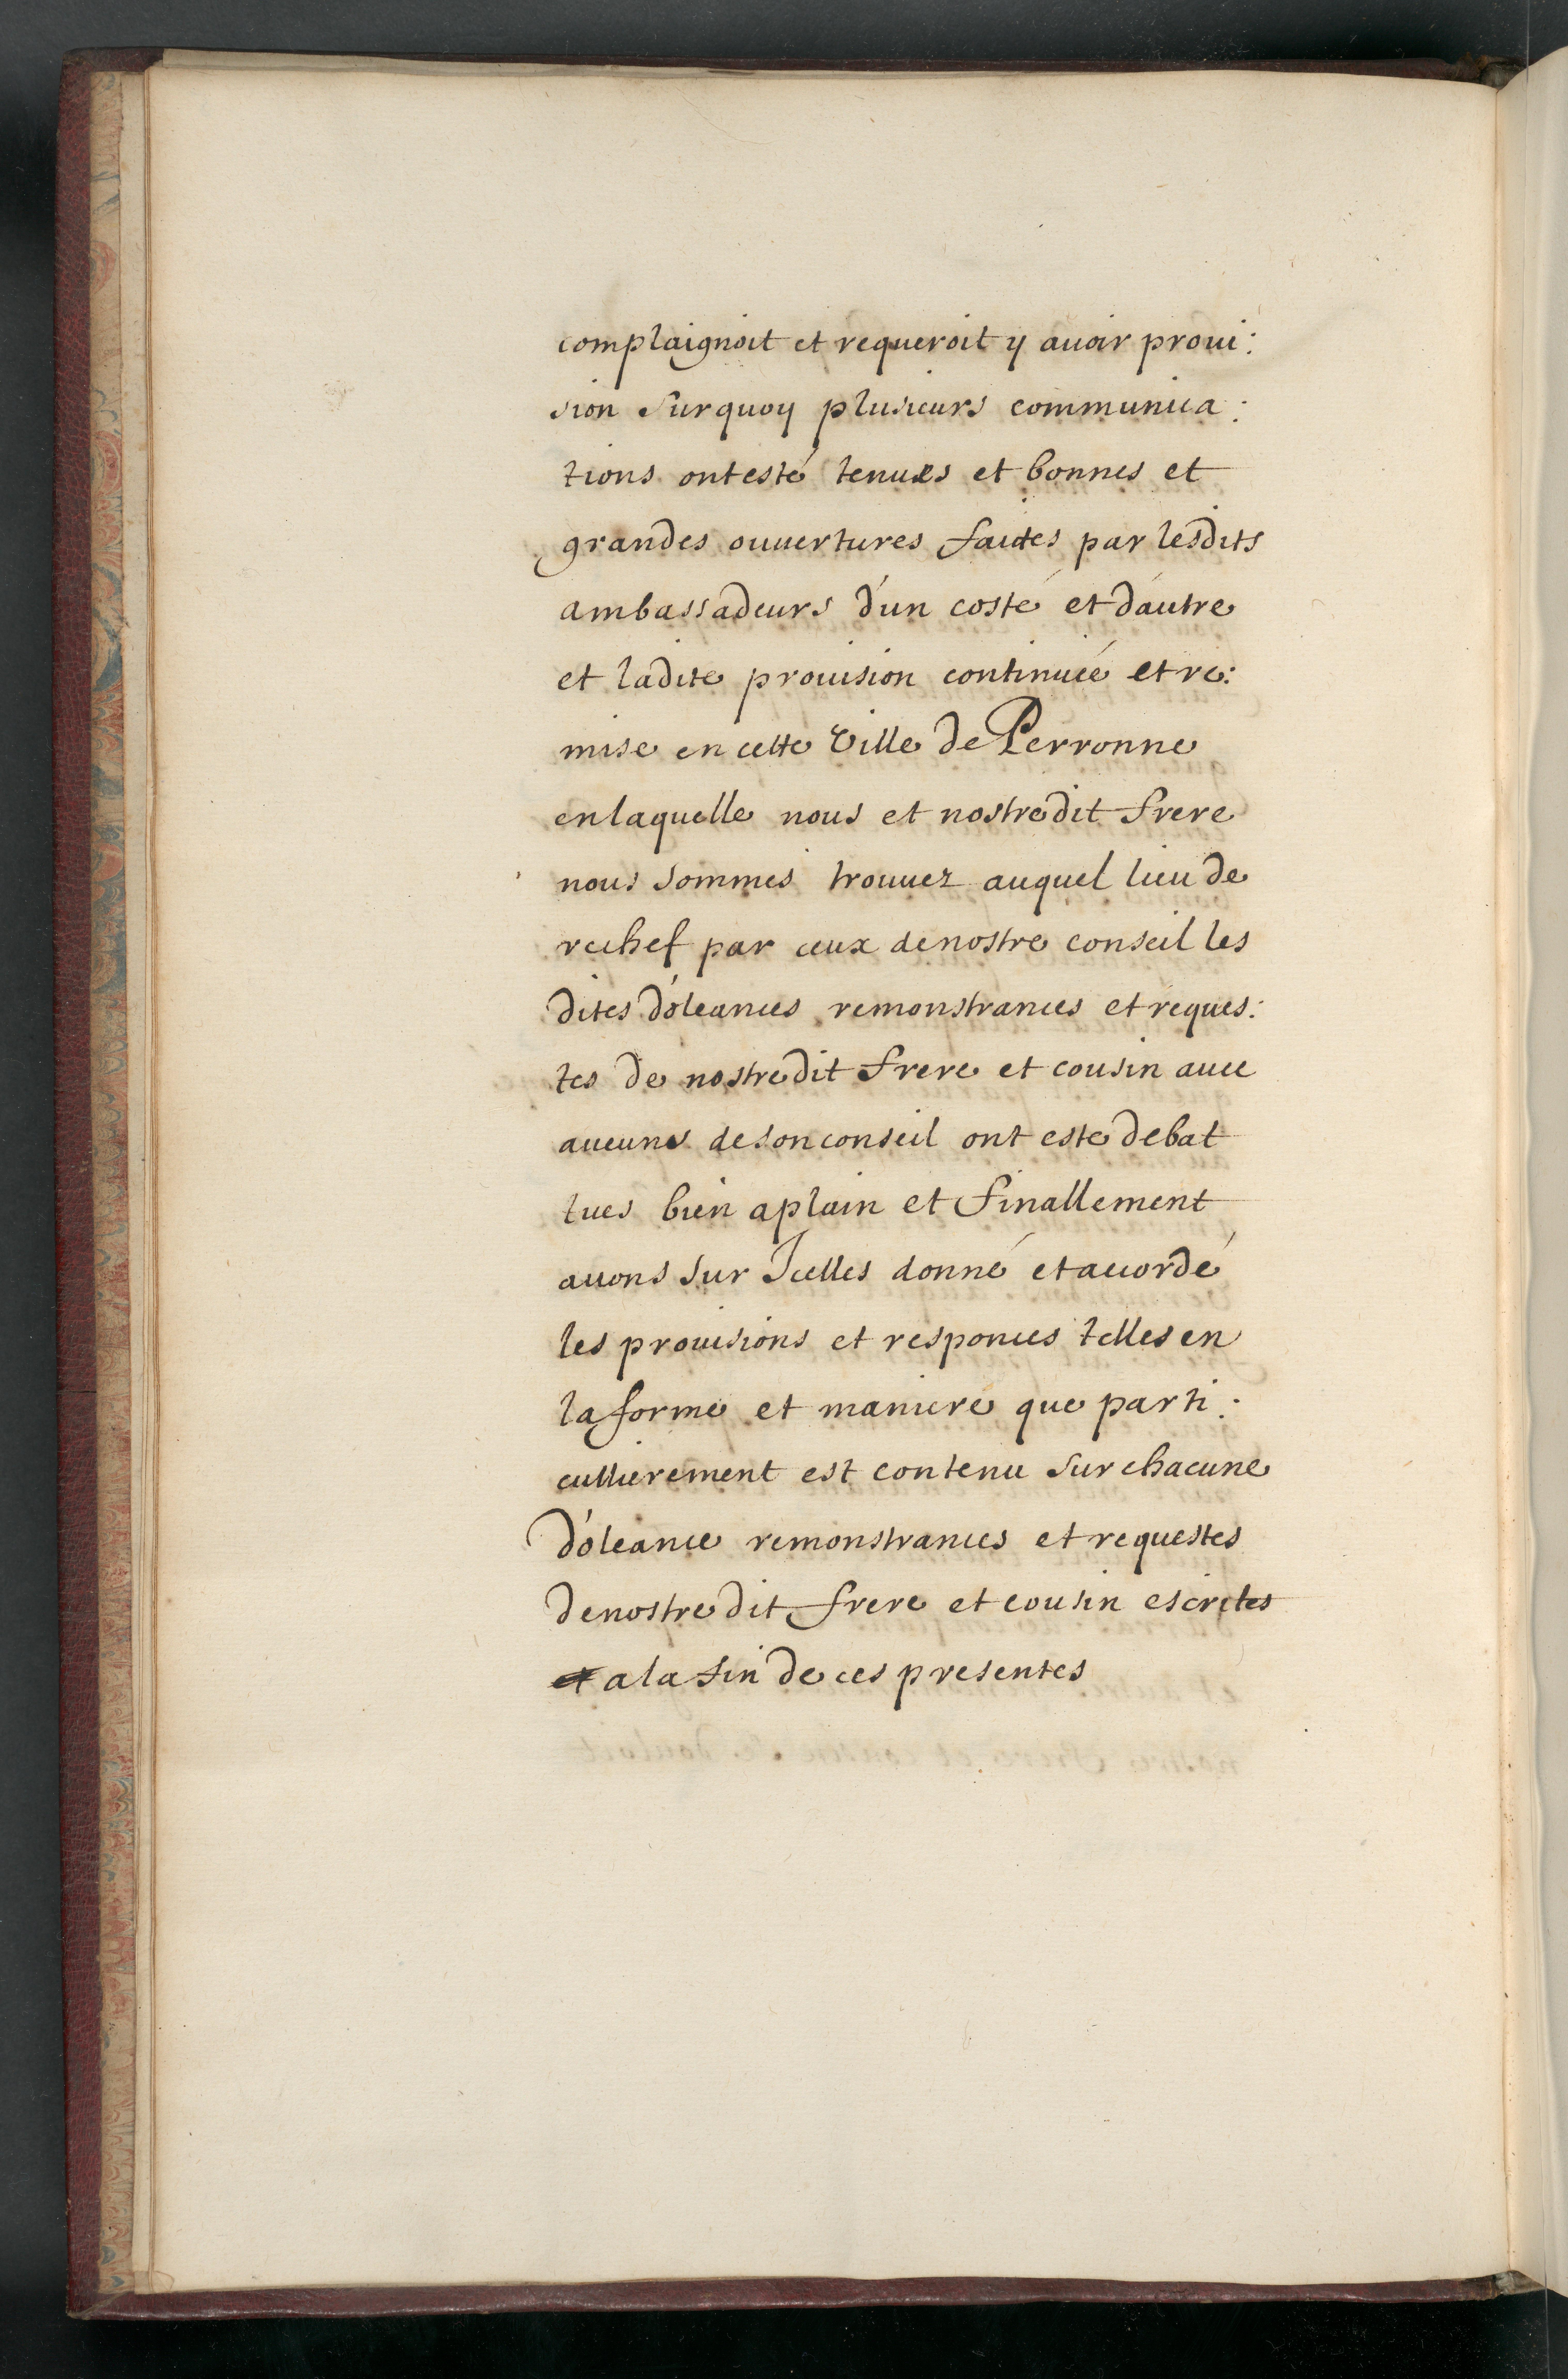 complaignoit et requeroit y auoir proui:
sion surquoy plusieurs communica:
tions ont esté tenues et bonnes et
grandes ouuertures faites par lesdits
ambassadeurs d'un costé et d'autre
et ladite prouision continuée et re:
mise en cette Ville de Perronne
en laquelle nous et nostredit frere
nous sommes trouuez auquel lieu de
rechef par ceux de nostre conseil les
dites d'oleances remonstrances et reques:
tes de nostredit frere et cousin auec
aucuns de son conseil ont esté debat
tues bien aplain et finallement
auons sur Icelles donné et accordé
les prouisions et responces telles en
la forme et maniere que parti:
cullierement est contenu sur chacune
d'oleance remonstrances et requestes
de nostredit frere et cousin escrites
a la fin de ces presentes